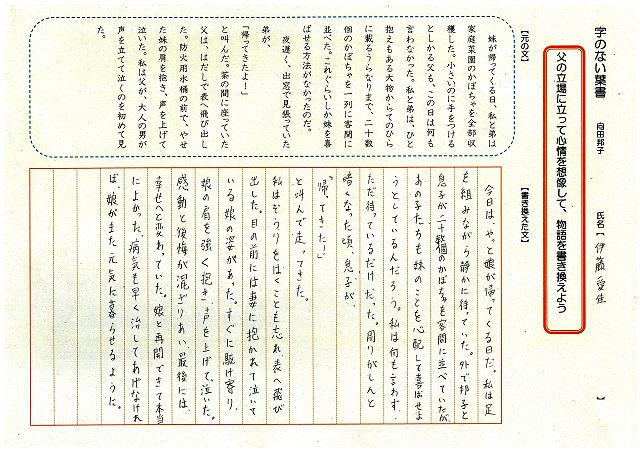 字のない葉書 向田邦子
氏名【 伊藤 愛佳 】
父の立場に立って心情を想像して、物語を書き換えよう
【元の文】
妹が帰ってくる日、私と弟は
家庭菜園のかぼちゃを全部収
穫した。小さいのに手をつける
としかる父も、この日は何も
言わなかった。私と弟は、ひと
抱えもある大物からてのひら
に載るうらなりまで、二十数
個のかぼちゃを一列に客間に
並べた。これぐらいしか妹を喜
ばせる方法がなかったのだ。
夜遅く、出窓で見張っていた
弟が、
「帰ってきたよ!」
と叫んだ。茶の間に座っていた
父は、はだしで表へ飛び出し
た。防火用水桶の前で、やせ
た妹の肩を抱き、声を上げて
泣いた。私は父が、大人の男が
声を立てて泣くのを初めて見
た。
【書き換えた文】
今日はやっと娘が帰ってくる日だ。私は足
を組みながら静かに待っていた。外で邦子と
息子が二十数個のかぼちゃを客間に並べていたが、
あの子たちも妹のことを心配して喜ばせよ
うとしているんだろう。私は何も言わず、
ただ待っているだけだった。周りがしんと
暗くなった頃、息子が、
「帰ってきたー!」
と叫んで走ってきた。
私はぞうりをはくことも忘れ表へ飛び
出した。目の前には妻に抱かれて泣いて
いる娘の姿があった。すぐに駆け寄り、
娘の肩を強く抱き、声を上げて泣いた。
感動と後悔が混ざりあい、最後には、
幸せへと変わっていた。娘と再開できて本当
によかった。病気も早く治してあげなけれ
ば、娘がまた元気に暮らせるように。